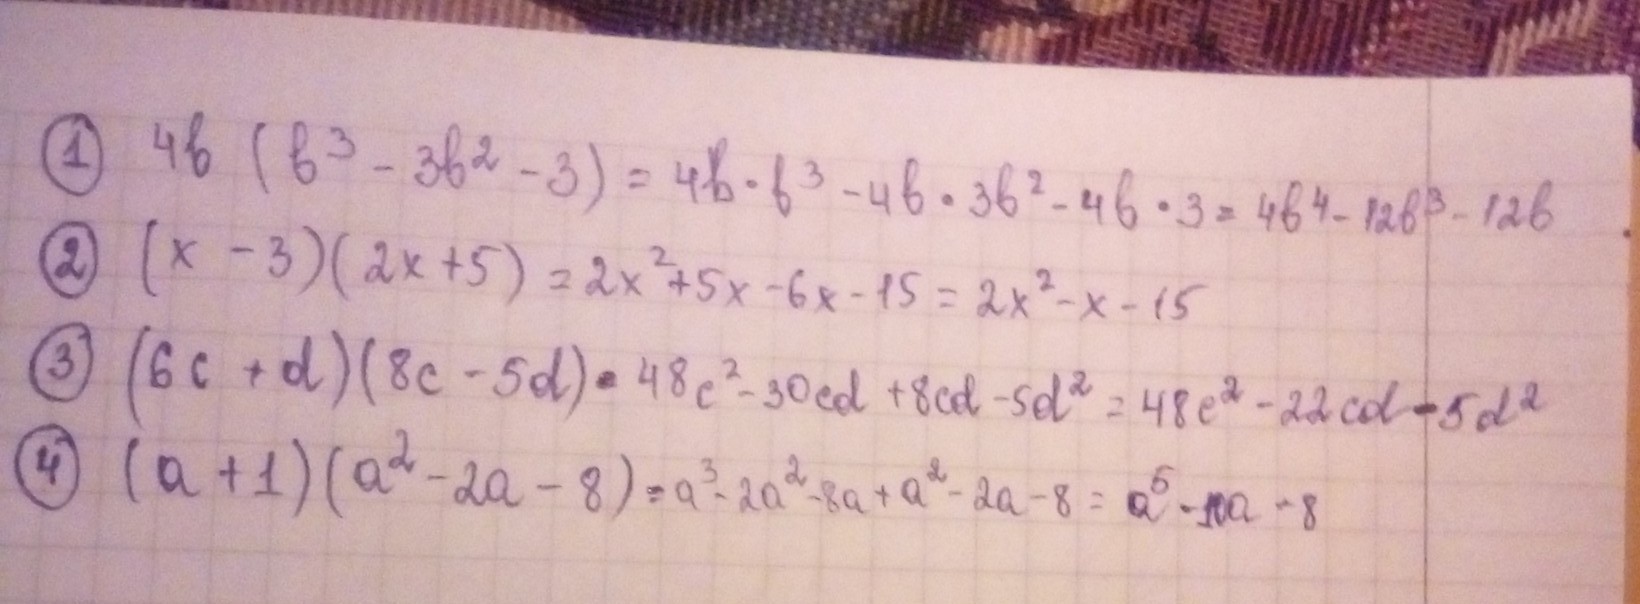 ① 4b (b³ - 3b² - 3) = 4b · b³ - 4b · 3b² - 4b · 3 = 4b⁴ - 12b³ - 12b
② (x - 3)(2x + 5) = 2x² + 5x - 6x - 15 = 2x² - x - 15
③ (6c + d)(8c - 5d) = 48c² - 30cd + 8cd - 5d² = 48c² - 22cd - 5d²
④ (a + 1)(a² - 2a - 8) = a³ - 2a² - 8a + a² - 2a - 8 = a⁵ - 10a - 8